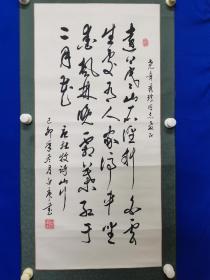 同志
遠上寒山石徑斜白雲
生處有人家停車坐
愛楓林晚霜葉紅于
二月花 唐杜牧詩山行
己卯